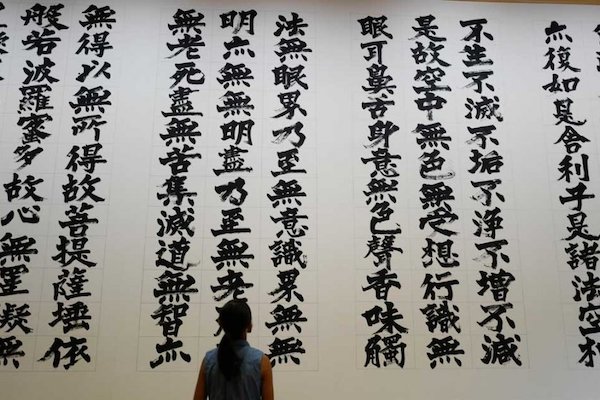 亦復如是舍利子是諸法空相
不生不滅不垢不淨不增不減
是故空中無色無受想行識無
眼耳鼻舌身意無色聲香味觸
法無眼界乃至無意識界無無
明亦無無明盡乃至無老
無老死盡無苦集滅道無智亦
無得以無所得故菩提薩埵依
般若波羅蜜多故心無罣礙無